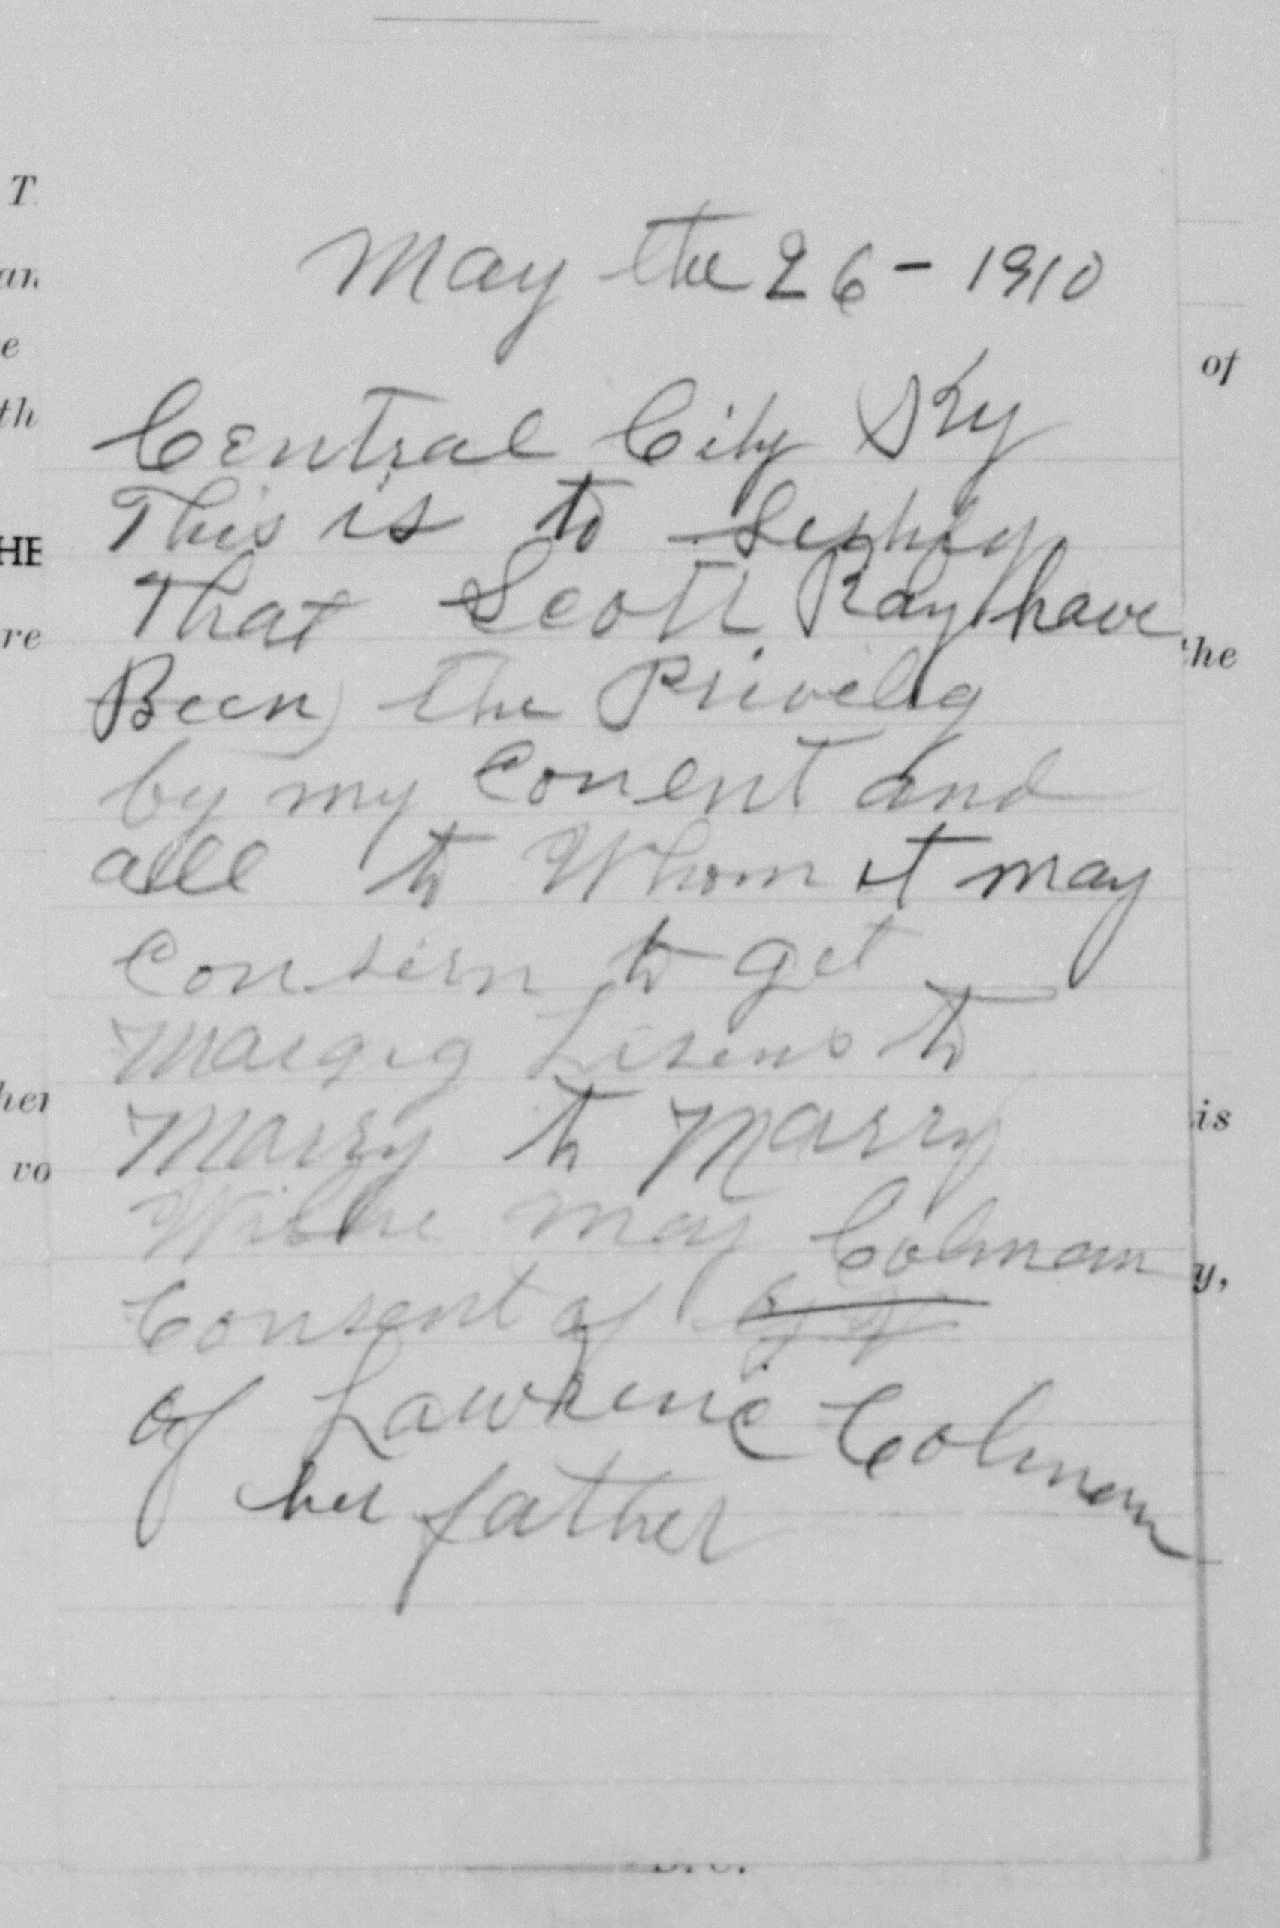 May the 26 - 1910
Central City Ky
This is to
That Scott Ray have
Been the Privelig
by my Conent and
all to Whom it may
Consern to get
Margig Lisens to
Marry to Marry
Willie may Colman
Consent of
of Lawrenc Colman
her father
T
an
e
th
HE
re
her
vo
of
the
is
y,